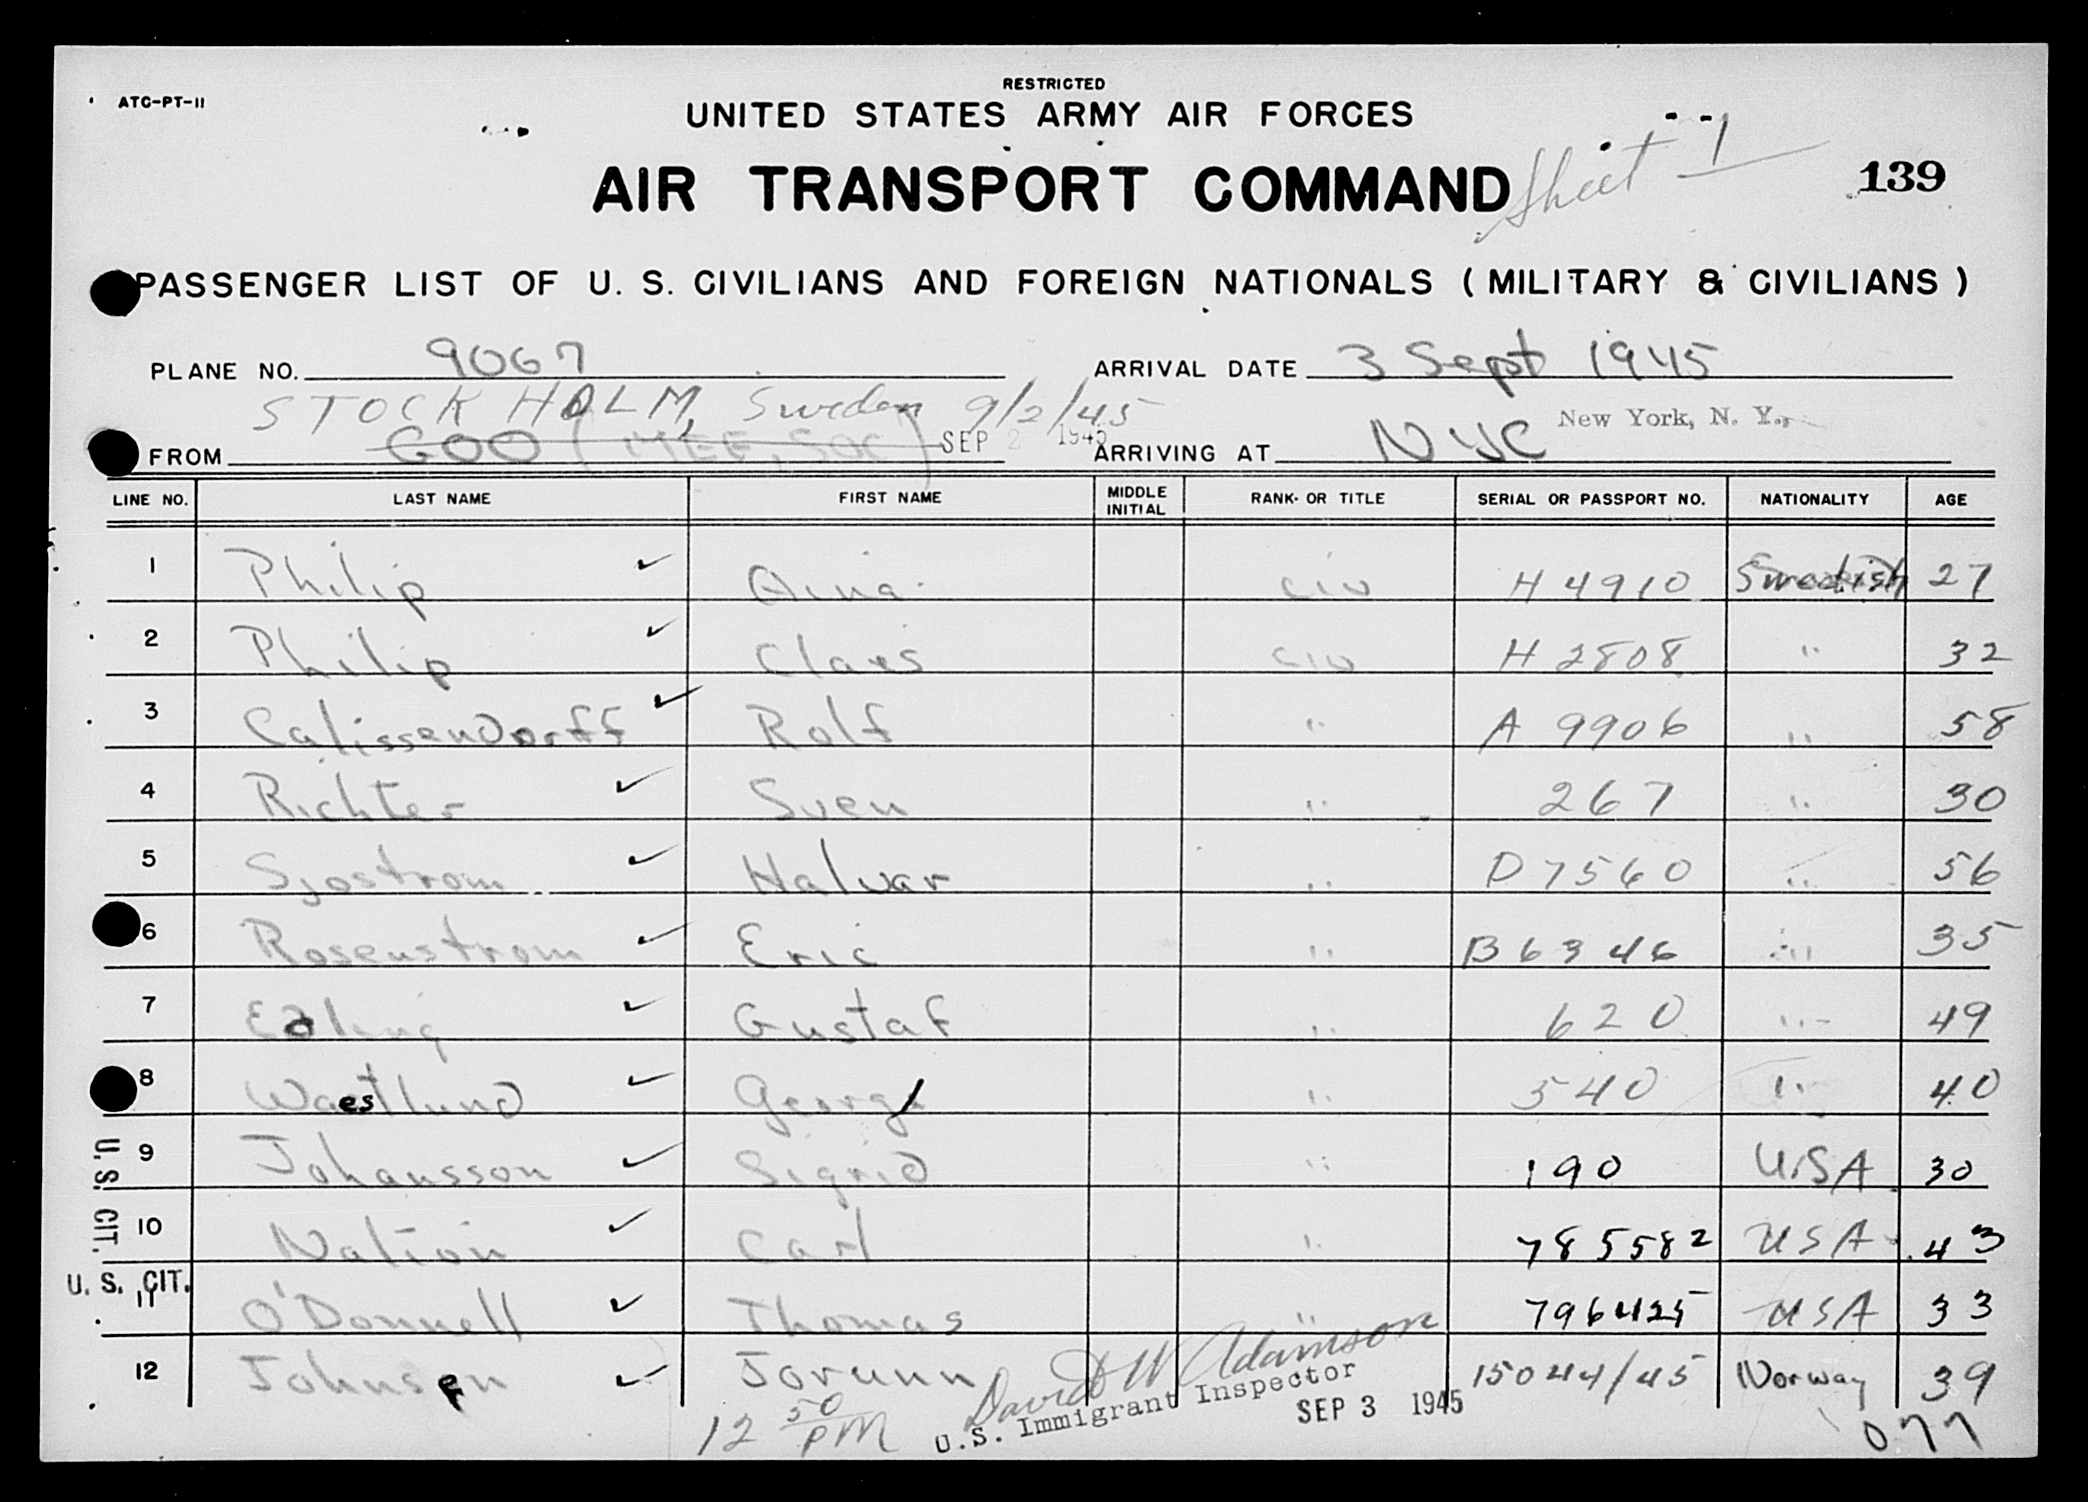 RESTRICTED
ATC-PT-11
UNITED STATES ARMY AIR FORCES
Sheet 1
AIR TRANSPORT COMMAND
139
PASSENGER LIST OF U. S. CIVILIANS AND FOREIGN NATIONALS ( MILITARY & CIVILIANS )
PLANE NO. 9067 ARRIVAL DATE 3 Sept 1945
STOCKHOLM, Sweden 9/2/45
FROM GOO SEP 2 1945 ARRIVING AT NYC New York, N. Y.,
LINE NO. LAST NAME FIRST NAME MIDDLE INITIAL RANK OR TITLE SERIAL OR PASSPORT NO. NATIONALITY AGE
1 Philip ✓ Aina civ H 4910 Swedish 27
2 Philip ✓ Claes civ H 2808 " 32
3 Calissendorff ✓ Rolf " A 9906 " 58
4 Richter ✓ Sven " 267 " 30
5 Sjostrom ✓ Halvar " D 7560 " 56
6 Rosenstrom ✓ Eric " B 6346 " 35
7 ✓ Gustaf " 620 " 49
8 Westlund ✓ Georg " 540 " 40
9 Johansson ✓ Sigrid " 190 USA 30
10 Nation ✓ Carl " 785582 USA 43
11 O'Donnell ✓ Thomas " 796425 USA 33
12 Johnsen ✓ Jorunn 15044/45 Norway 39
U. S. CIT.
U. S. CIT.
12 50 PM
David W Adamson
U.S. Immigrant Inspector
SEP 3 1945
077